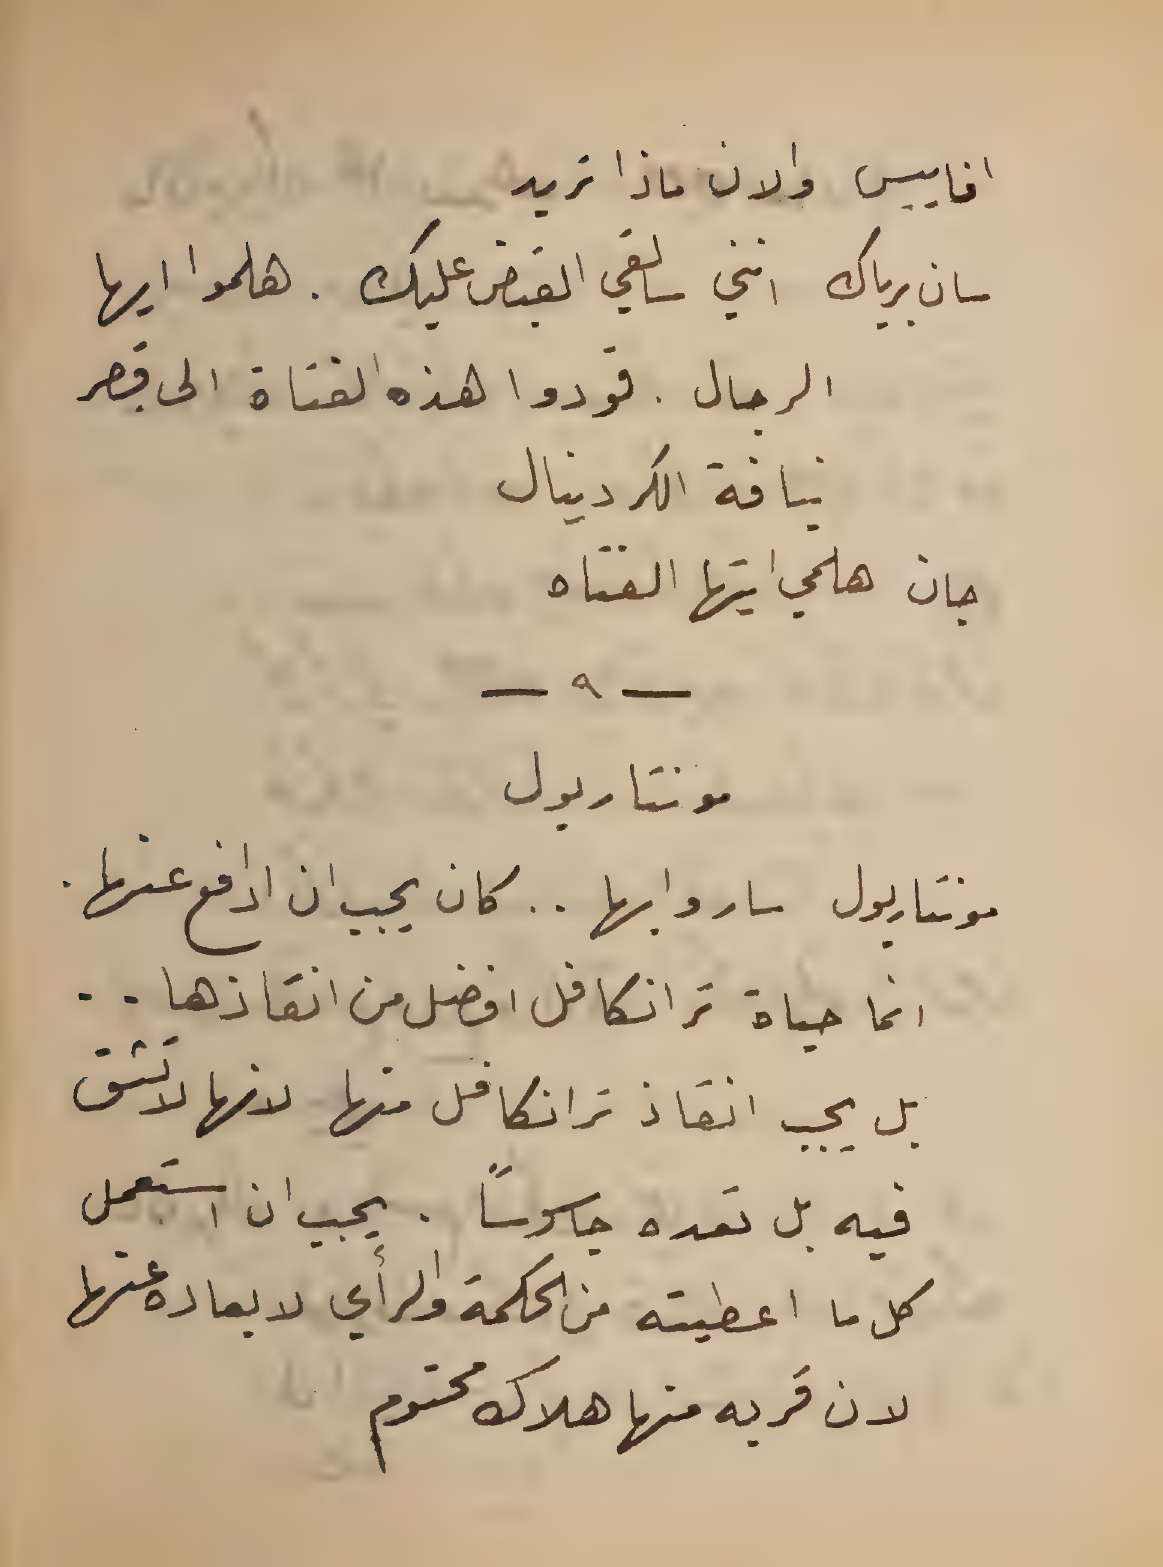 اناييس والان ماذا تريد
سان برياك انني سالقي القبض عليك . هلموا ايها
الرجال . قودوا هذه الفتاة الى قصر
نيافة الكردينال
جان هلمي ايتها الفتاه
— ٩ —
مونتاريول
مونتاريول ساروا بها .. كان يجب ان ادافع عنها .
انما حياة ترانكافل افضل من انقاذها ..
بل يجب انقاذ ترانكافل منها لانها لا تثق
فيه بل تعده جاسوساً . يجب ان استعمل
كل ما اعطيته من الحكمة والرأي لابعاده عنها
لان قربه منها هلاك محتوم